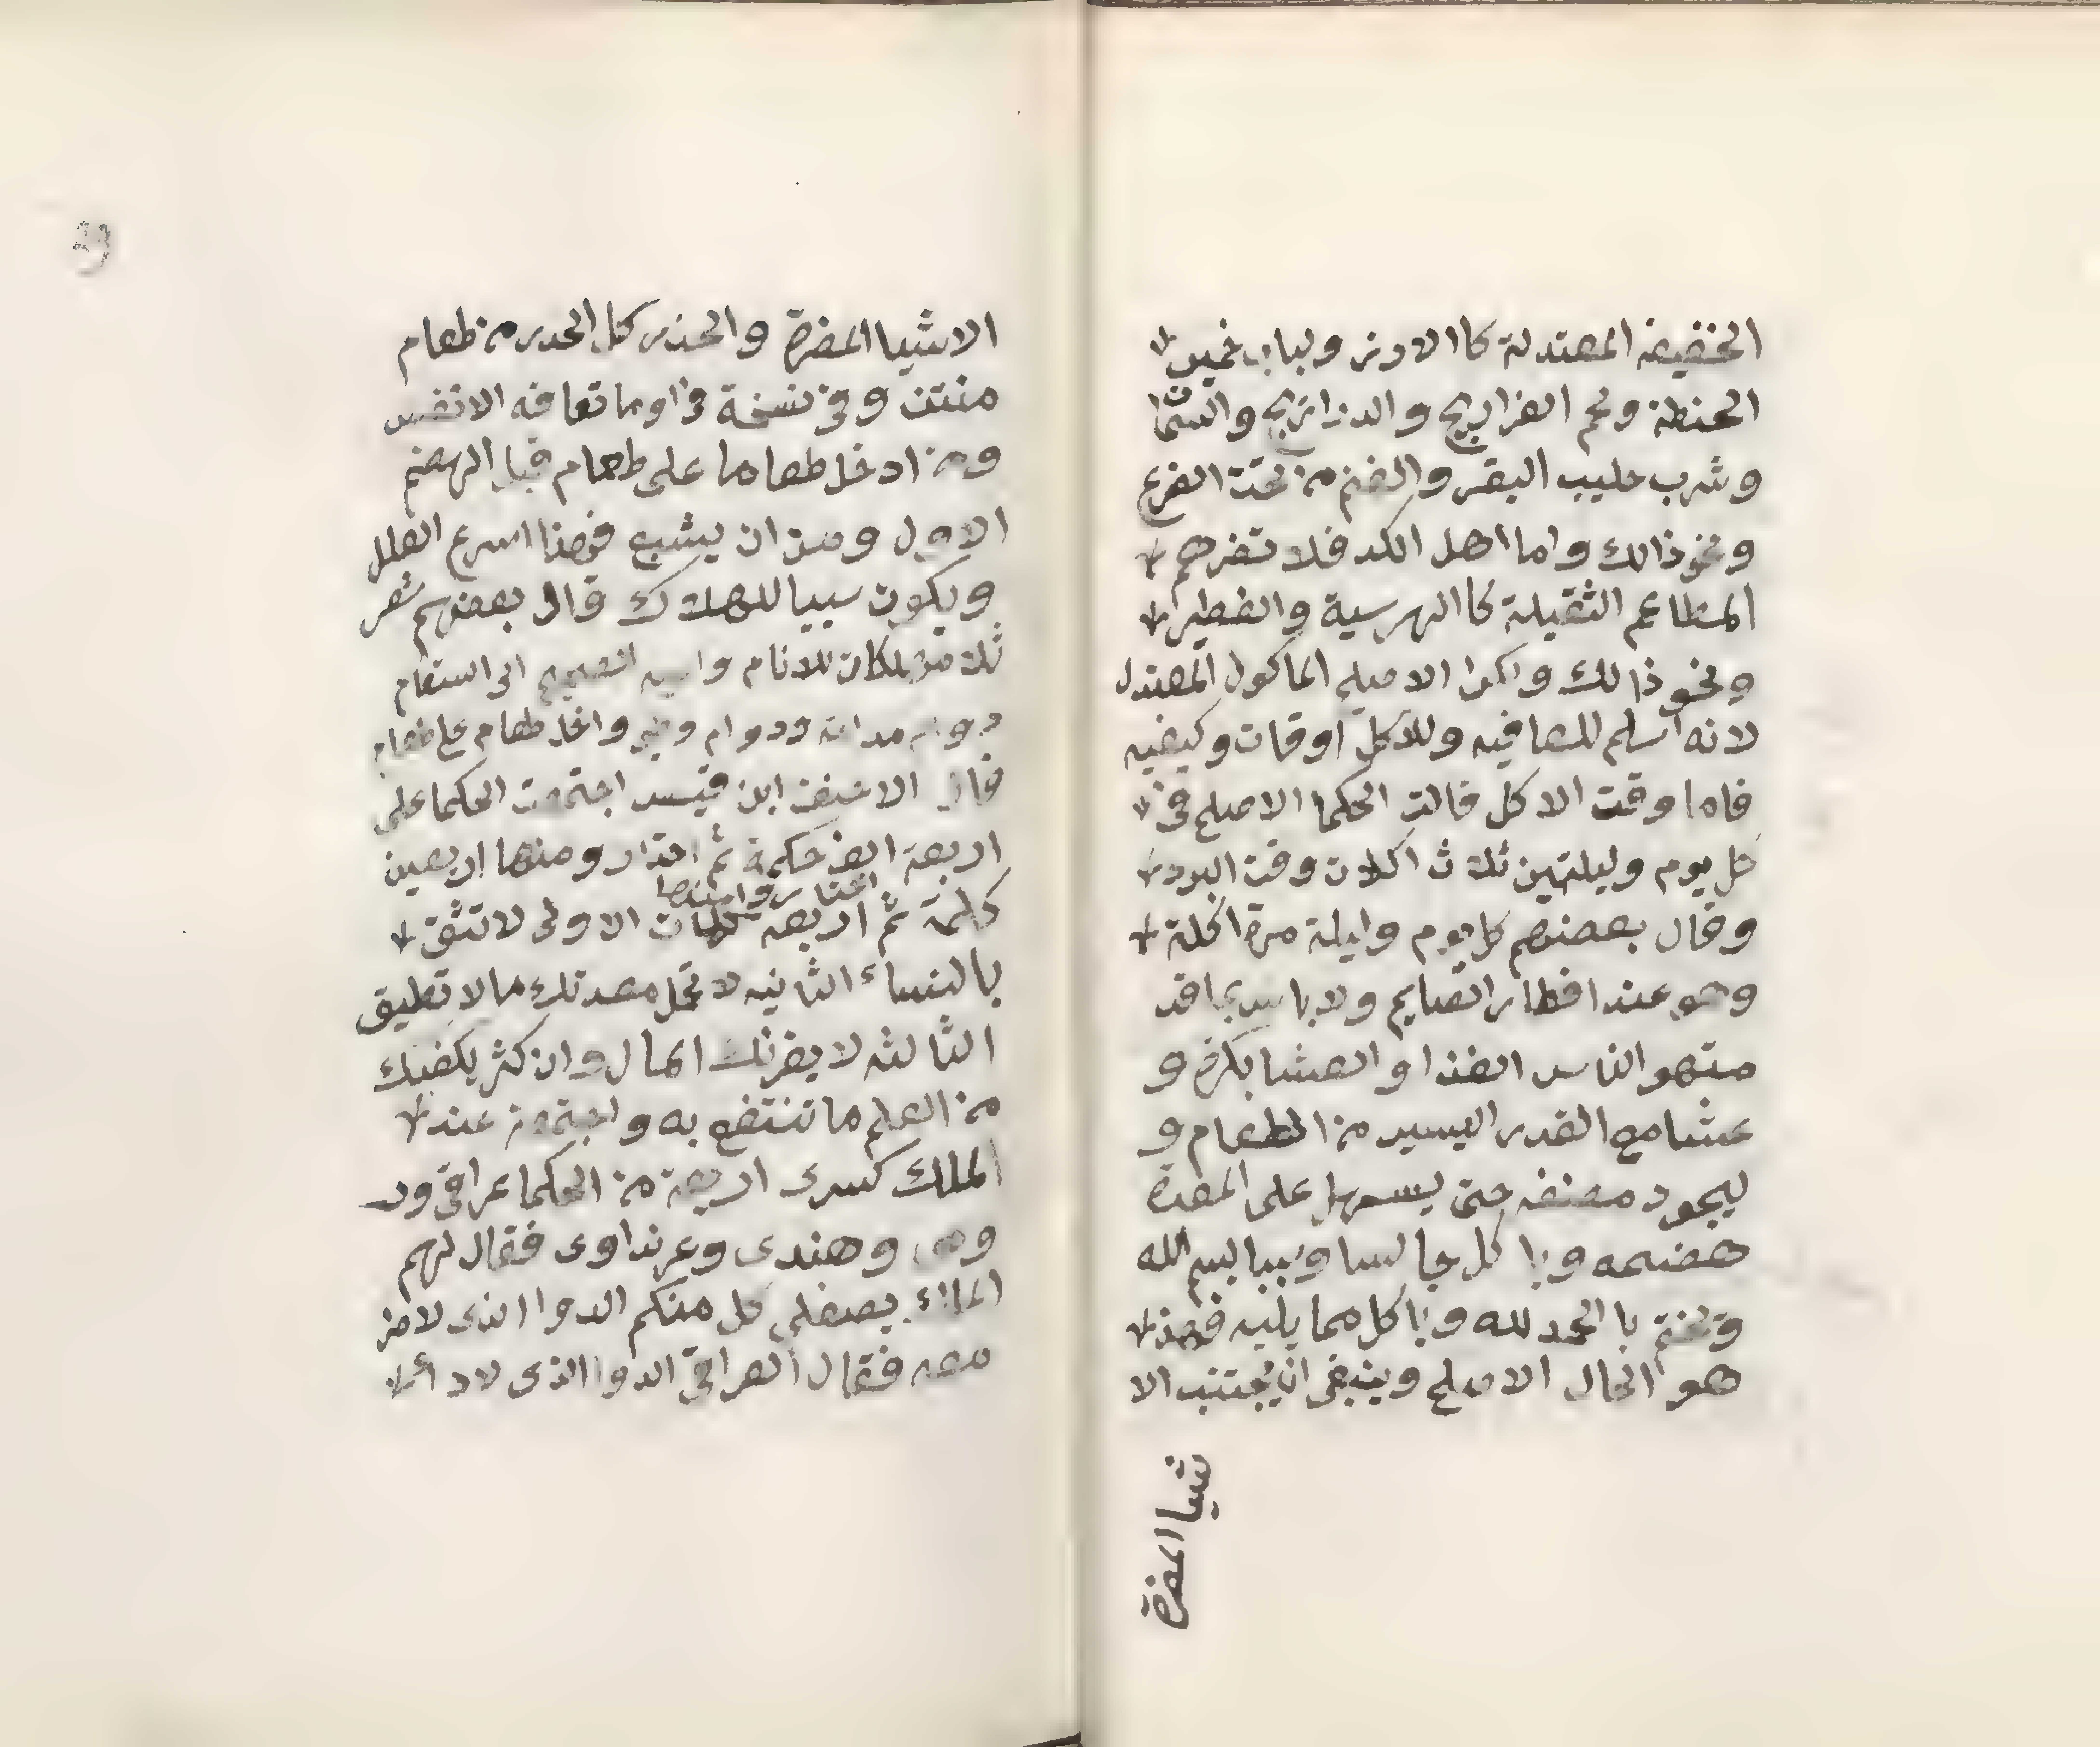 الخفيفة المعتدلة كا الارز ولباب خمير
الحنطة ولحم الفراريج والدراريج والسما
وشرب حليب البقر والغنم من تحت الفرع
ونحو ذالك واما اهل الكد فلا تضرهم
المطاعم الثقيلة كا الهرسية والفطير
ونحو ذا لك وانما الاصلح الماكول المعتدل
لانه اسلم للعافيه وللاكل اوقات وكيفيه
فاما وقت الاكل قالت الحكما الاصلح في
كل يوم وليلتين ثلاث اكلات وقت البرد
وقال بعضهم كل يوم وليلة مرة اكلة
وهو عند افطار الصايم ولا باس بما قد
الناس الغذا والعشا بكرة و
عشا مع القدر اليسير من الطعام و
ليجود مضغه حتى يسهل على المعدة
هضمه وياكل جالسا ويبدا بسم الله
وتختم با الحمد لله وياكل مما يليه فهذ
هو الحال الاصلح وينبغي ان يجتنب الا
شيا المضرة
الاشيا المضرة والحذر كل الحدر من طعام
منتن وفي نسخة او ما تعافه الانفس
ومن ادخل طعاما على طعام قبل الهضم
الاول ومن ان يشبع فهذا اسرع العلل
ويكون سببا للهلاك قال بعضهم شعر
ثلاث مهلكات للانام الصحيح الى السقام
دوام مدامة ودوام وطي وادخال طعام على طعام
قال الاحنف ابن قيس اجتمعت الحكما على
اربعة الف حكمة ثم اختار ومنها اربعين
اختار وامنها
كلمة ثم اربعه كلمات الاولى لا تثق
بالنساء الثانيه لا تحمل معدتك ما لا تطيق
الثالثه لا يغرنك المال وان كثر يكفيك
من العلم ما تنتفع به واجتمعت عند
الملك كسرى اربعة من الحكما عراقي ور
ومي وهندي وعرنداوى فقال لهم
الملك يصف لي كل منكم الدوا الذى لا ضر
معه فقال العراقي الدوا الذى لا دا